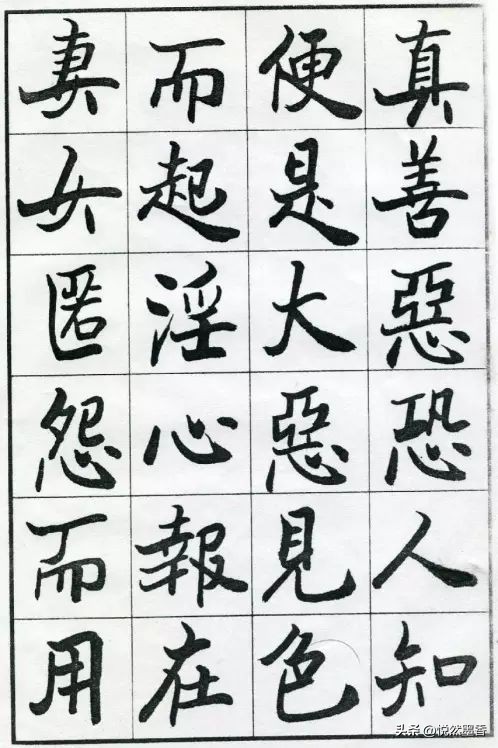 真善惡恐人知
便是大惡見色
而起淫心報在
妻女匿怨而用
头条@悦然墨香